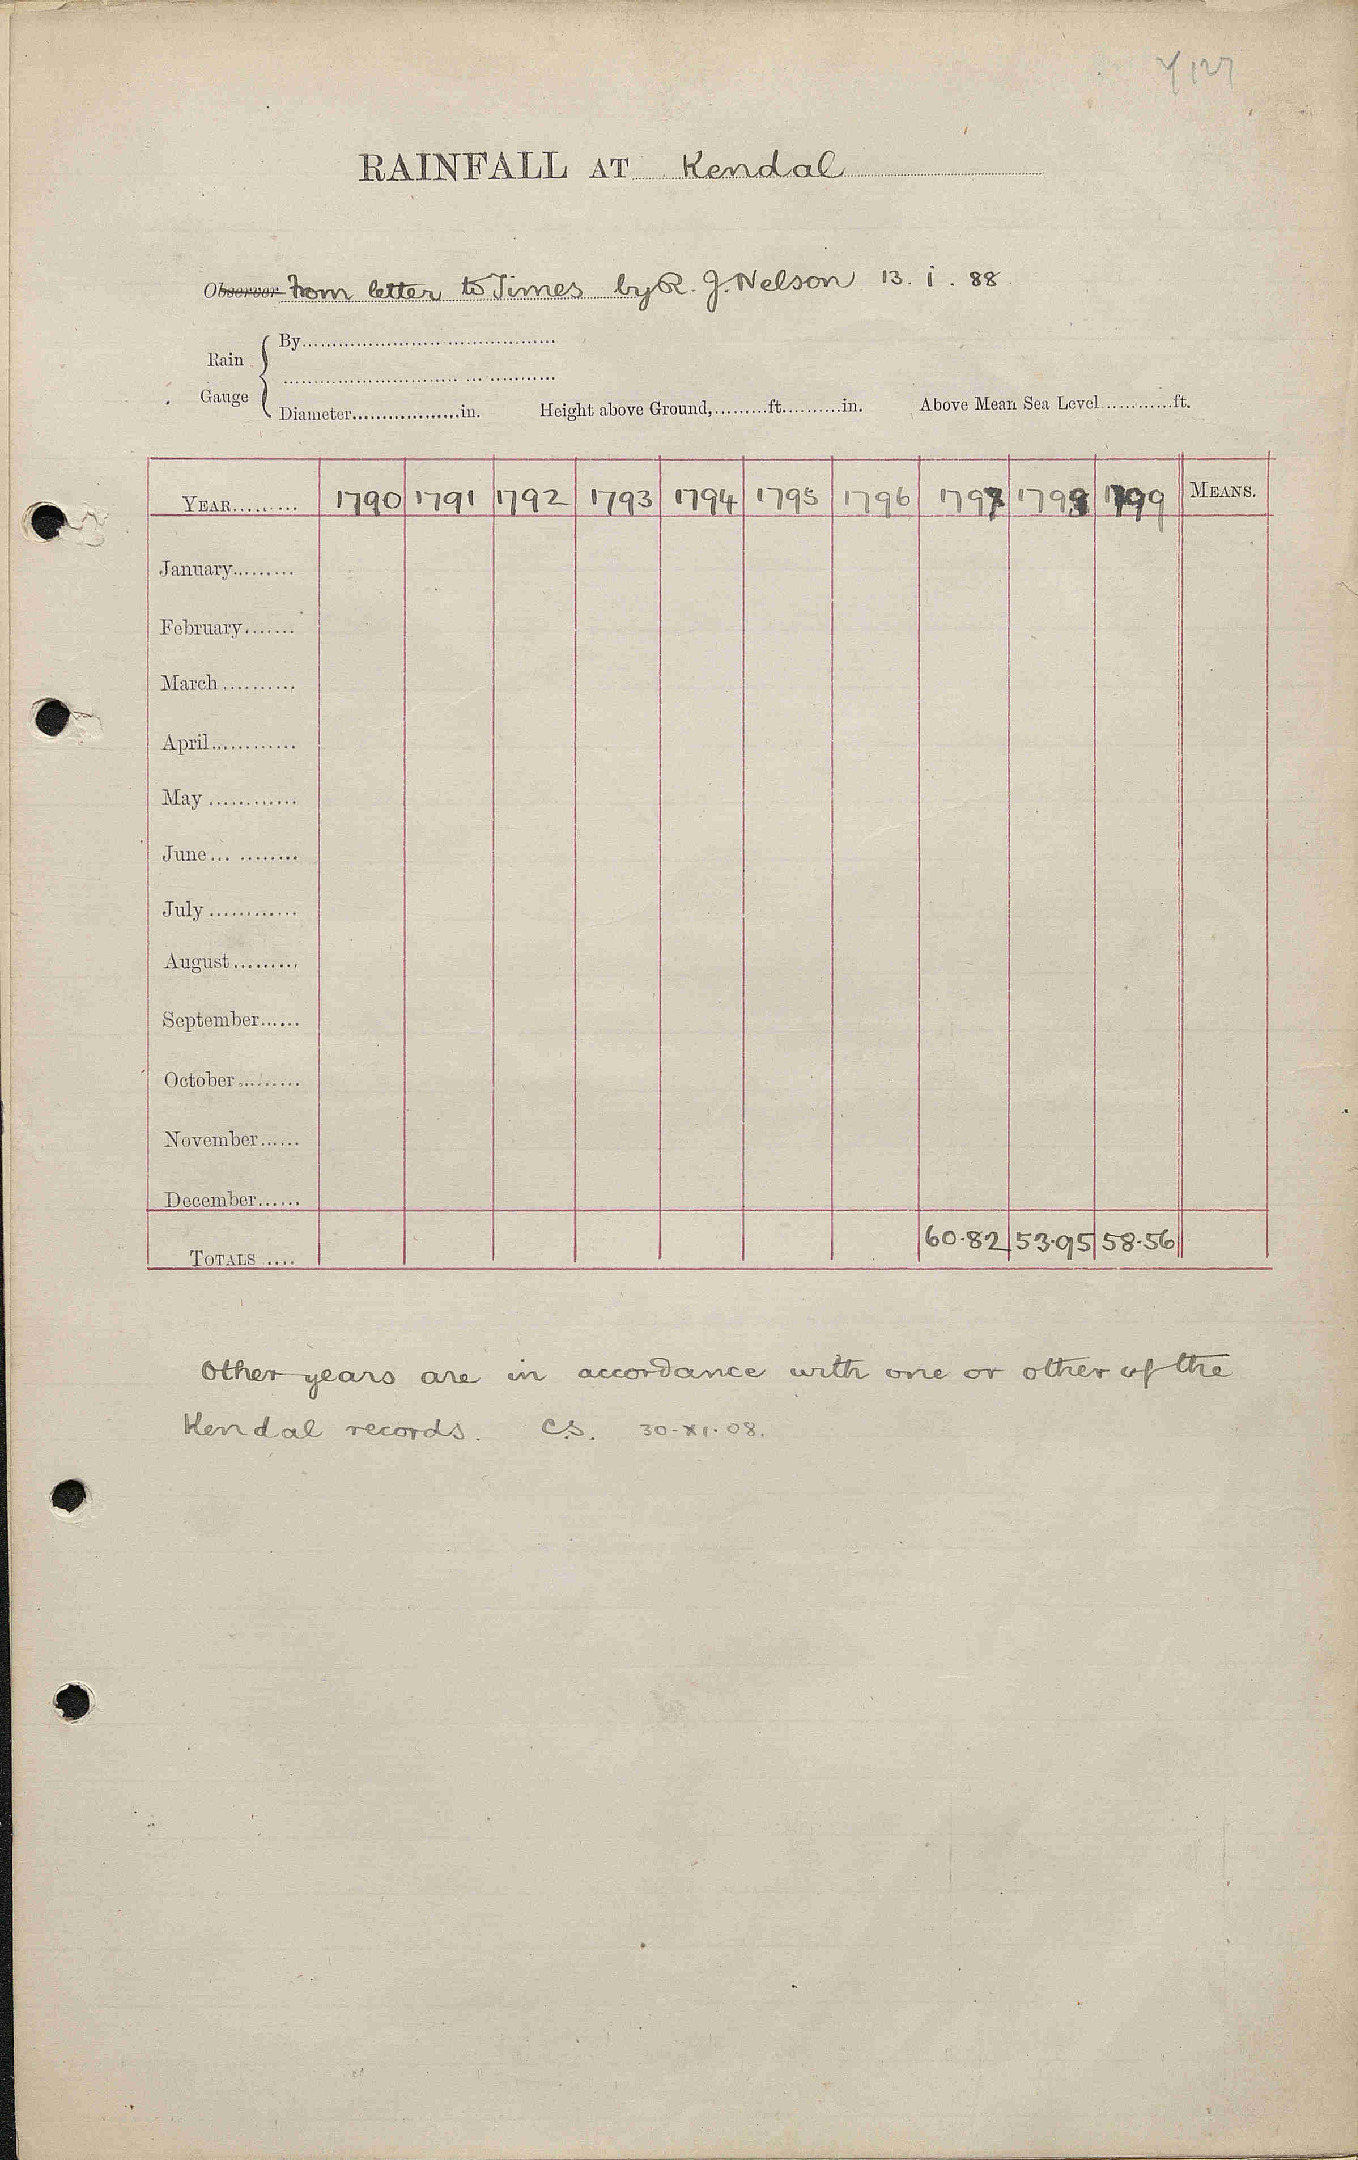 RAINFALL AT Kendal
Observer From letter to Times by R. J. Nelson 13. i. 88
Rain Gauge
By
Diameter in. Height above Ground, ft. in. Above Mean Sea Level ft.
YEAR 1790 1791 1792 1793 1794 1795 1796 1797 1798 1799 MEANS.
January
February
March
April
May
June
July
August
September
October
November
December
TOTALS 60.82 53.95 58.56
Other years are in accordance with one or other of the
Kendal records. C.S. 30-XI-08.